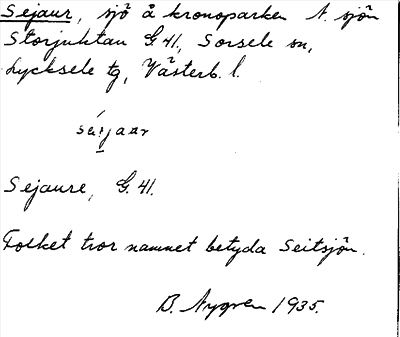 Sejaur, sjö å kronoparken N. sjön
Storjuktan G. 41, Sorsele sn,
Lycksele tg, Västerb. l.
seijaur
Sejaure, G. 41.
Folket tror namnet betyda Seitsjön.
B. Nygren 1935.